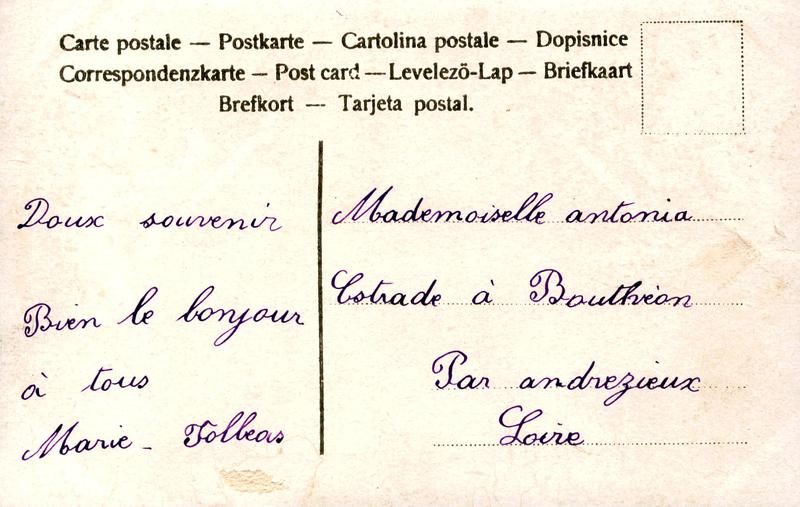 Carte postale — Postkarte — Cartolina postale — Dopisnice
Correspondenzkarte — Post card — Levelezö-Lap — Briefkaart
Brefkort — Tarjeta postal.
Doux souvenir
Bien le bonjour
à tous
Marie - Tolleas
Mademoiselle antonia
Estrade à Bouthéon
Par andrezieux
Loire